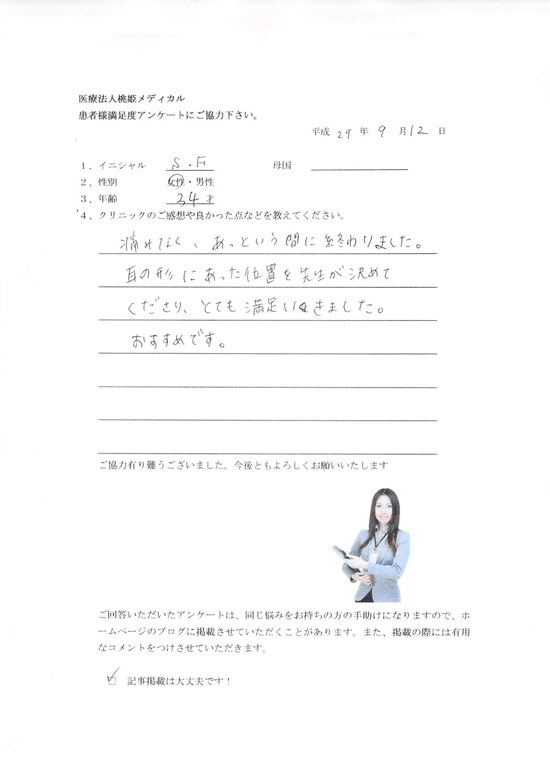 医療法人桃姫メディカル
患者様満足度アンケートにご協力下さい。
平成 29 年 9 月 12 日
1、イニシャル S.F 母国
2、性別 女性・男性
3、年齢 34才
4、クリニックのご感想や良かった点などを教えてください。
痛みなく、あっという間に終わりました。
耳の形にあった位置を先生が決めて
くださり、とても満足いきました。
おすすめです。
ご協力有り難うございました。今後ともよろしくお願いいたします
ご回答いただいたアンケートは、同じ悩みをお持ちの方の手助けになりますので、ホ
ームページのブログに掲載させていただくことがあります。また、掲載の際には有用
なコメントをつけさせていただきます。
記事掲載は大丈夫です！